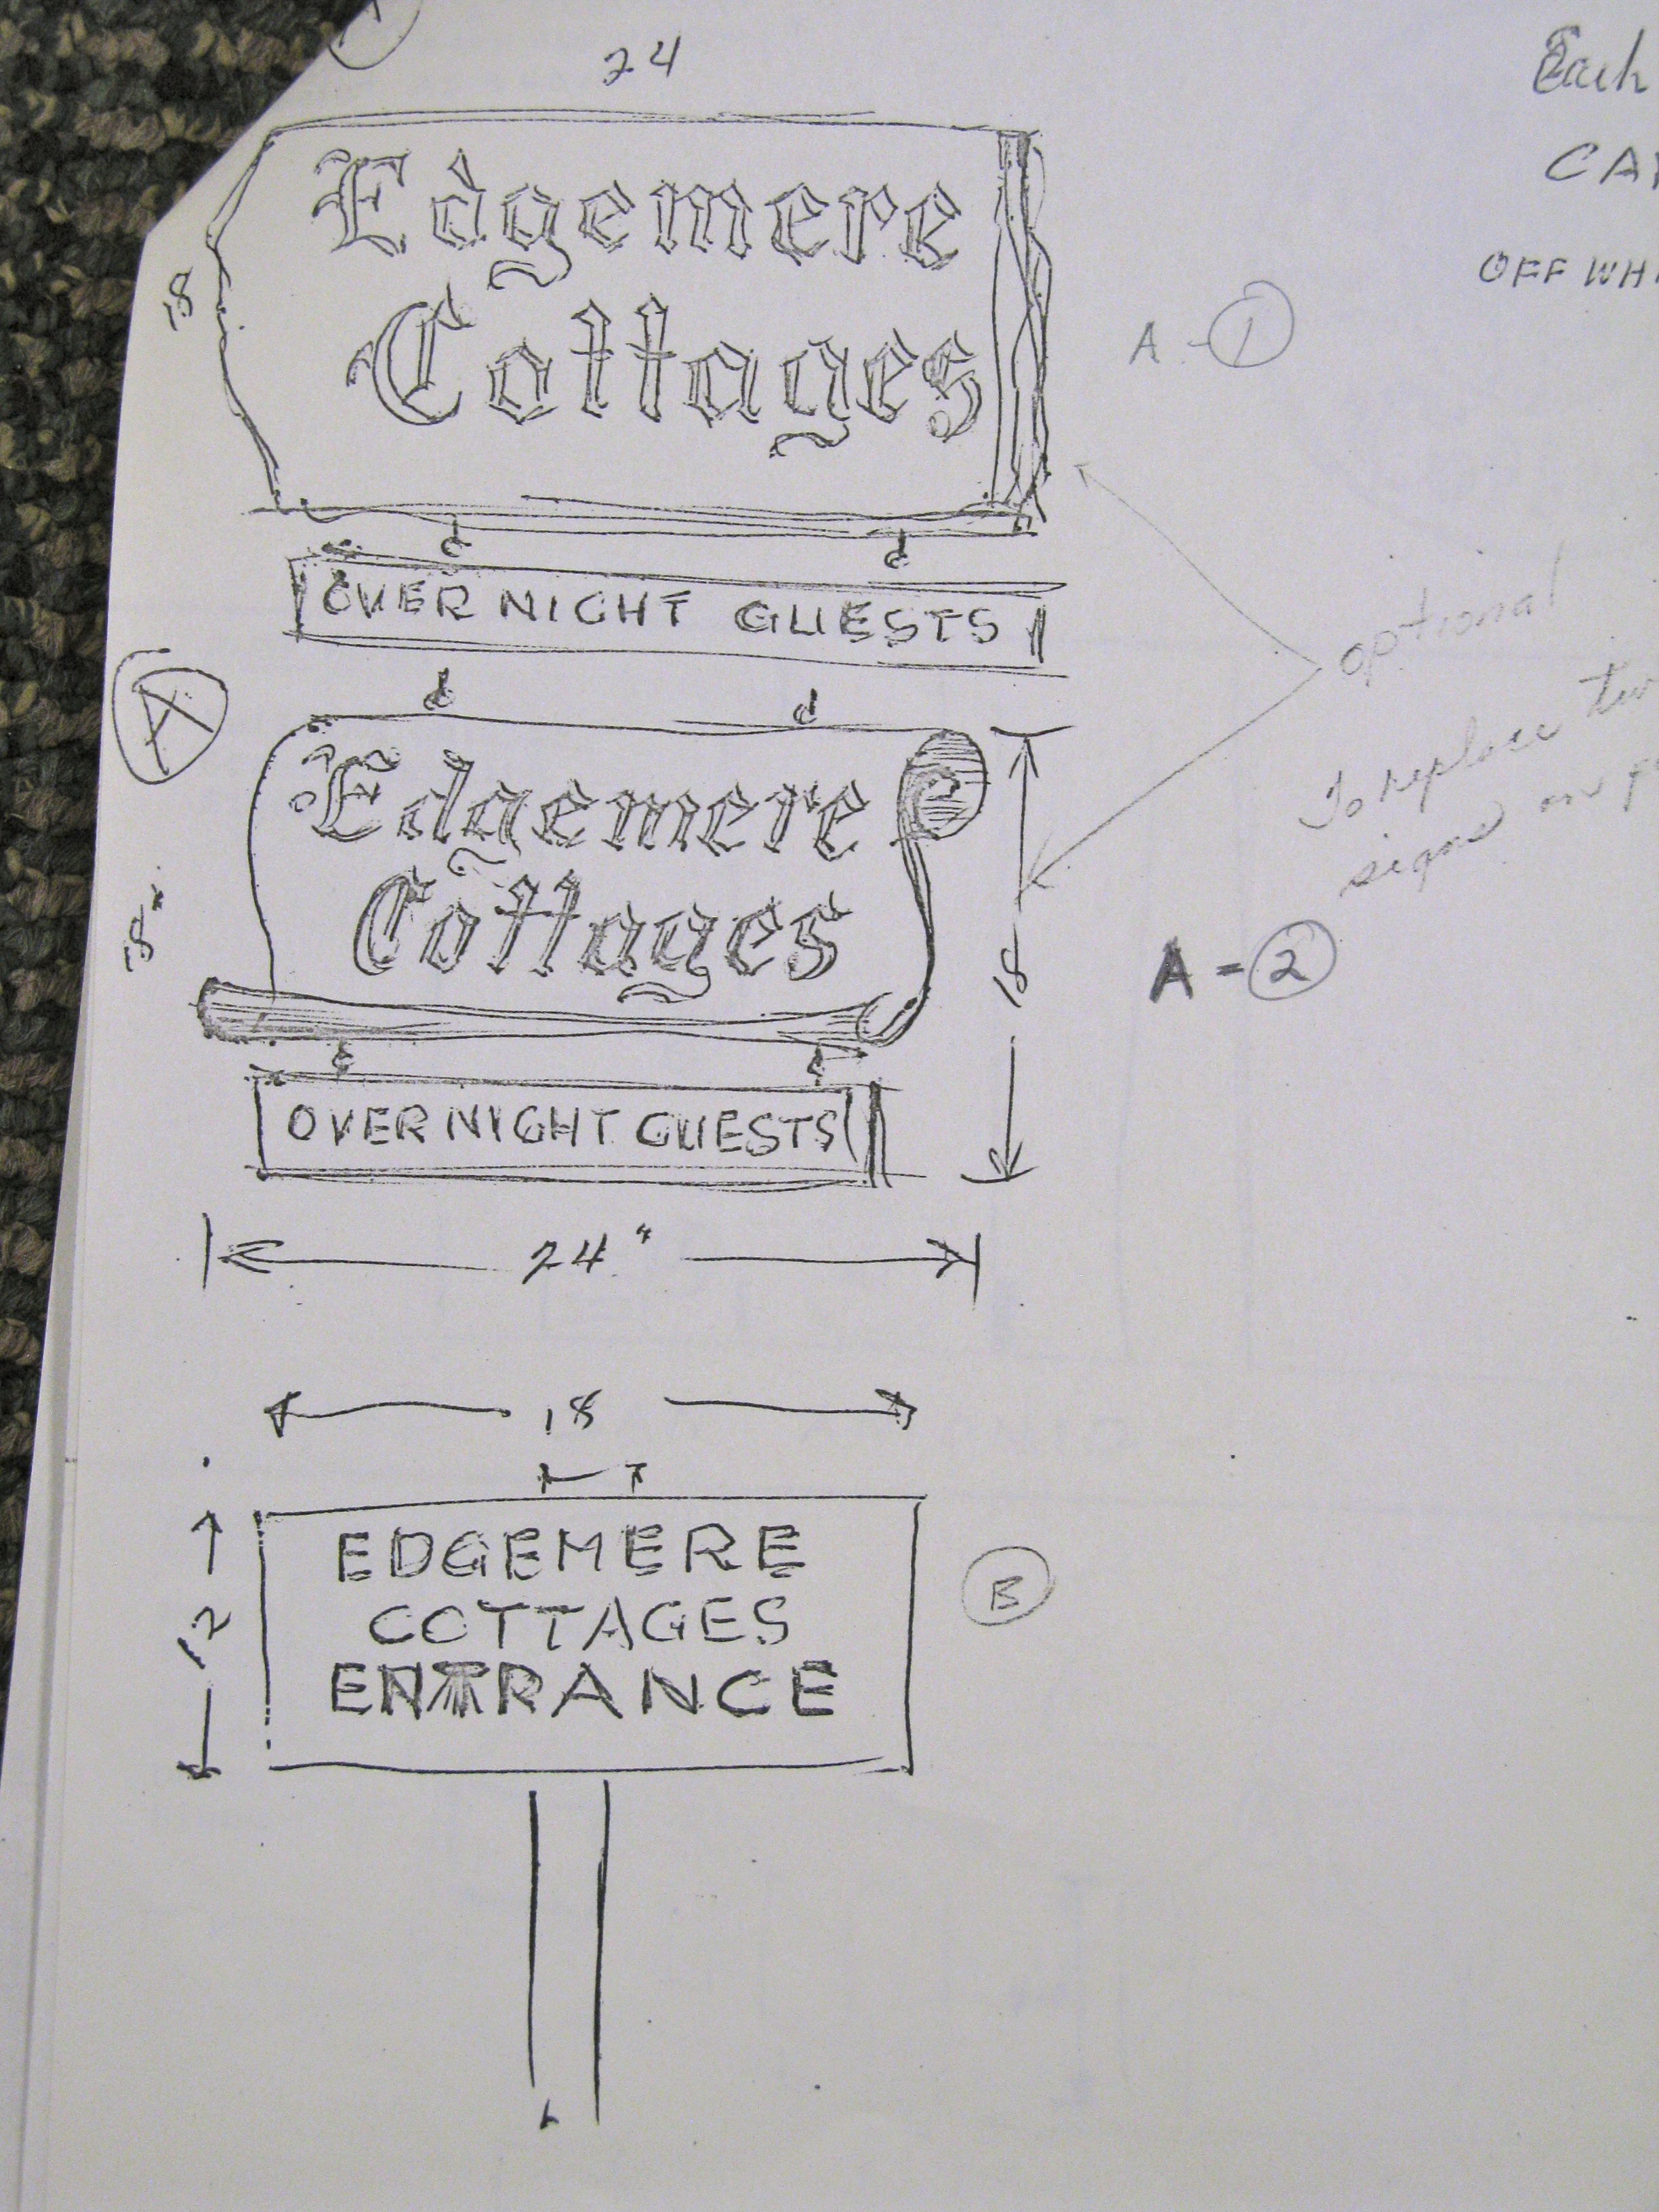 24
Each
CA
OFF WH
Edgemere
Cottages
18
A-1
OVER NIGHT GUESTS
optional
To replace
signs on
A
Edgemere
Cottages
18"
18
A=2
OVER NIGHT GUESTS
24"
18
12
EDGEMERE
COTTAGES
ENTRANCE
B